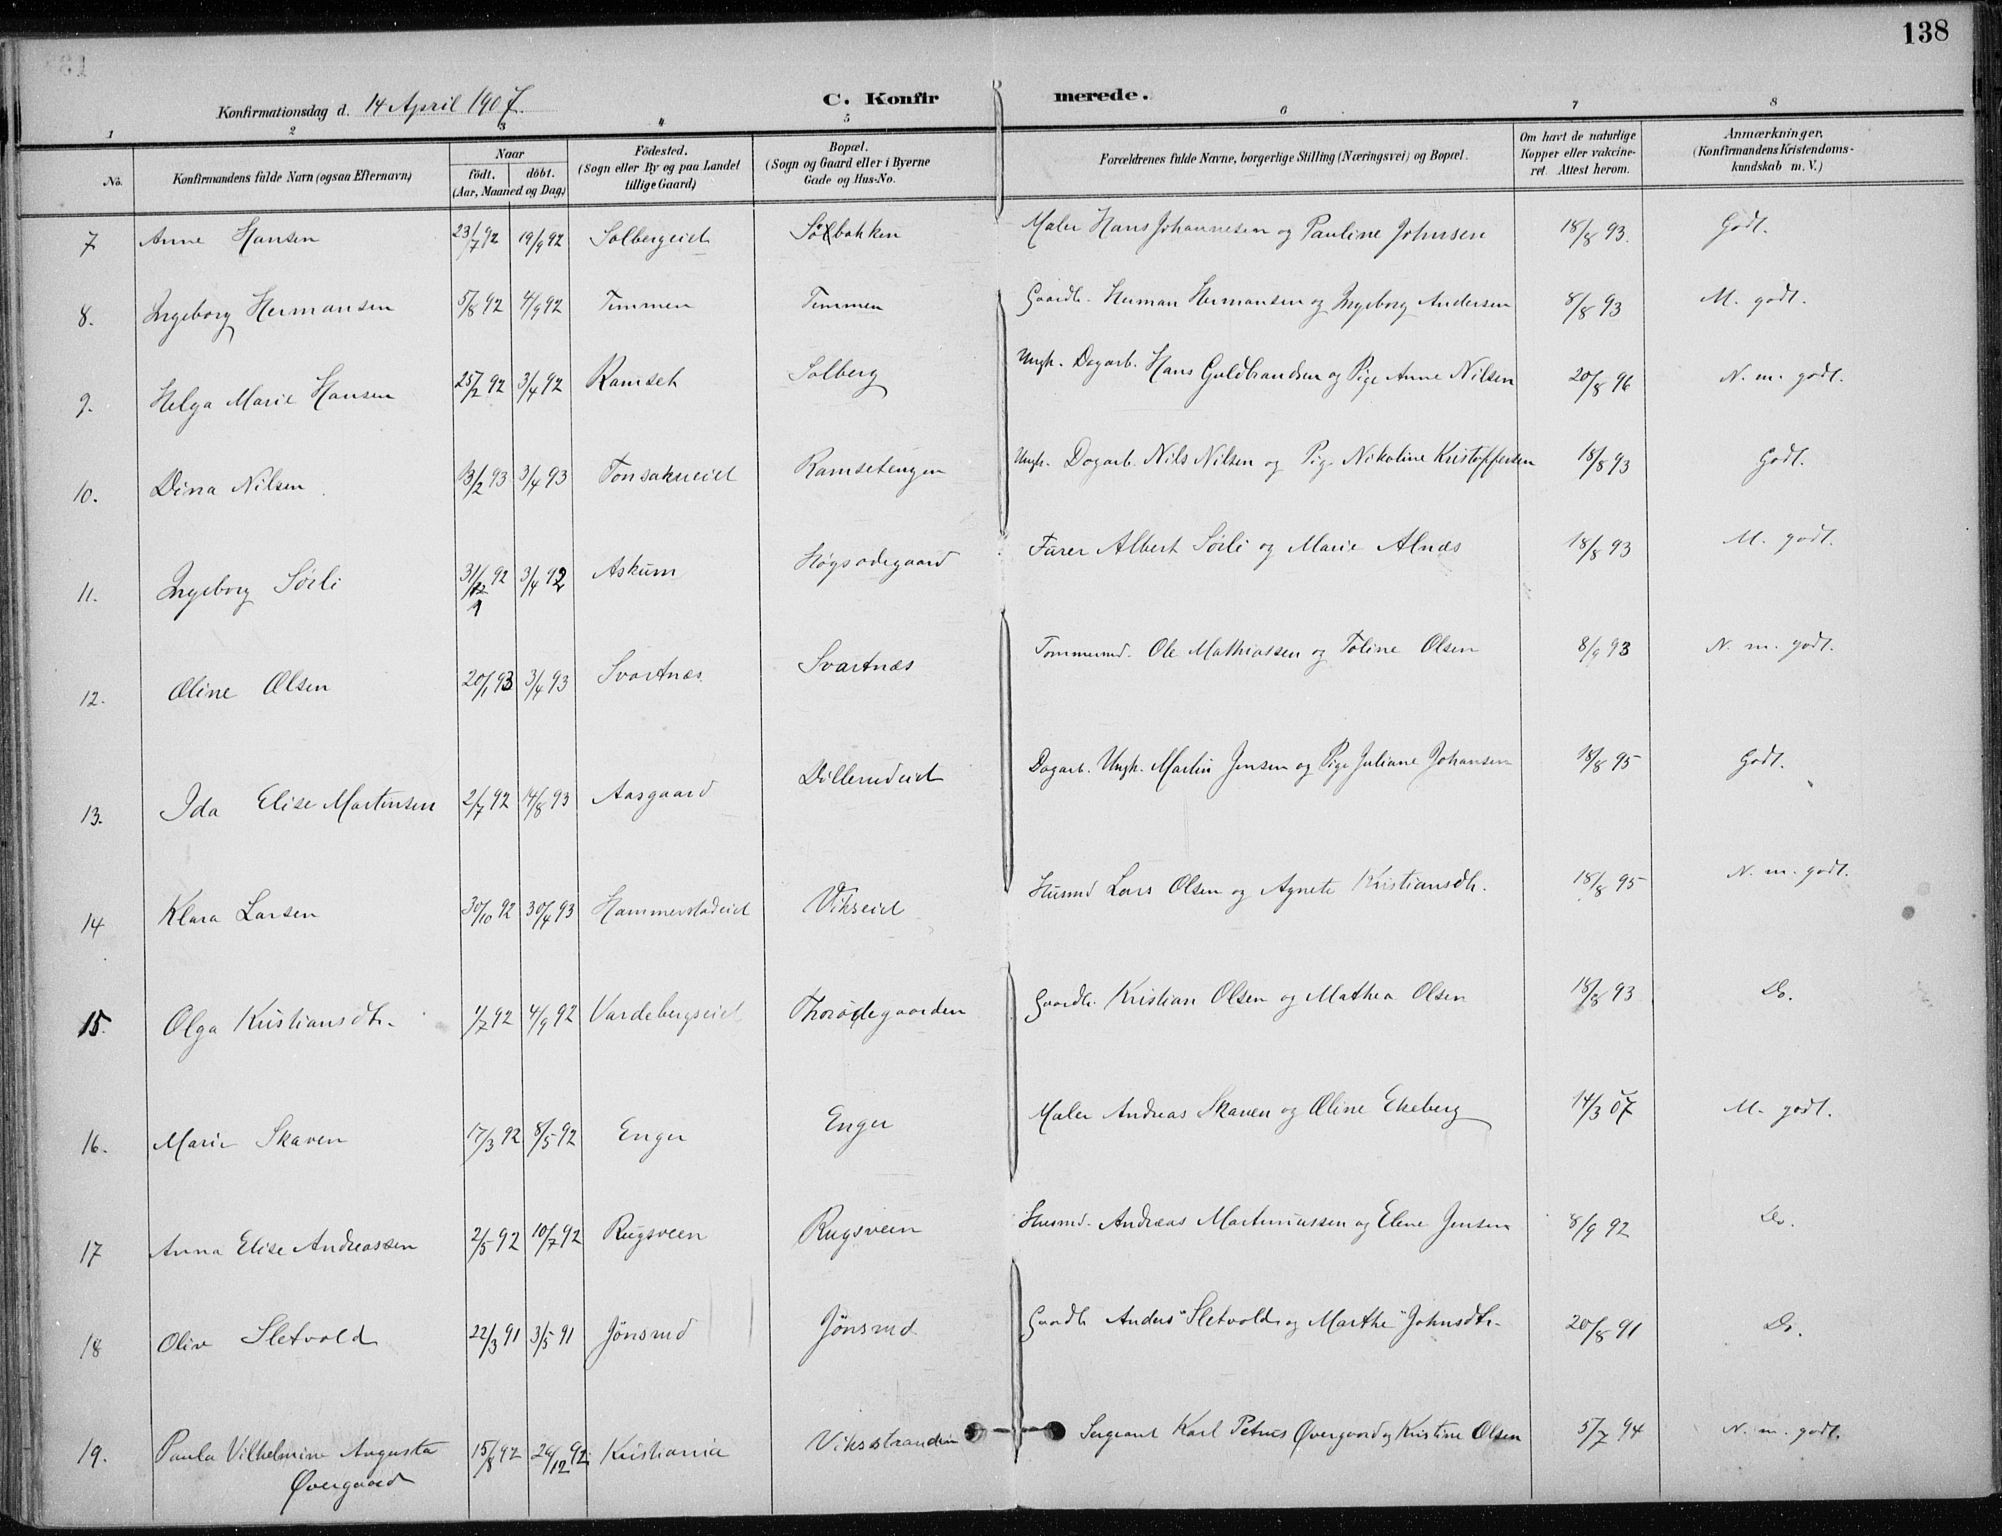 138
Konfirmationsdag d. 14 April 1907.
C. Konfirmerede.
1 2 3 4 5 6 7 8
No. Konfirmandens fulde Navn (ogsaa Efternavn) Naar födt. döbt. (Aar, Maaned og Dag.) Födested. (Sogn eller By og paa Landet tillige Gaard.) Bopæl. (Sogn og Gaard eller i Byerne Gade og Hus-No. Forældrenes fulde Navne, borgerlige Stilling (Næringsvei) og Bopæl. Om havt de naturlige Kopper eller vakcineret. Attest herom. Anmærkninger. (Konfirmandens Kristendomskundskab m. V.)
7 Anne Hansen 23/7 92 19/9 92 Solbergeiet Sölbakken Maler Hans Johannesen og Pauline Johnsen 18/8 93. Godt.
8. Ingeborg Hermansen 5/8 92 4/9 92 Timmen Timmen Gaardb. Herman Hermansen og Ingeborg Andersen 8/8 93 M. godt.
9. Helga Marie Hansen 25/2 92 3/4 92 Ramset Solberg Ungk. Dagarb. Hans Guldbrandsen og Pige Anne Nilsen 20/8 96 N. m. godt.
10. Dina Nilsen 13/2 93 3/4 93 Tonsakereiet Ramsetengen Ungk. Dagarb. Nils Nilsen og Pig. Nikoline Kristoffersen 18/8 93 Godt.
11. Ingeborg Söili 31/12 92 3/4 92 Askum Høgsødegaard Furer Albert Söili og Marie Alnæs 18/8 93 M. godt.
12. Oline Olsen 20/1 93 3/4 93 Svartnæs Svartnæs Tømmermd. Ole Mathiassen og Toline Olsen 8/9 93 N. m. godt.
13. Ida Elise Martinsen 2/7 92 14/8 93 Aasgaard Dillerudeiet Dagarb. Ungk. Martin Jensen og Pige Juliane Johansen 18/8 95 Godt.
14 Klara Larsen 30/10 92 30/4 93 Hammerstadeiet Vikseiet Husmd Lars Olsen og Agnete Kristiansdtr. 18/8 95 N. m. godt.
15. Olga Kristiansdtr. 1/7 92 4/9 92 Vardebergseiet Thorødegaarden Gaardb. Kristian Olsen og Mathea Olsen 18/8 93 Do.
16. Marie Skaven 17/3 92 8/5 92 Enger Enger Maler Andreas Skaven og Oline Ekeberg 14/3 07 M. godt.
17 Anna Elise Andreassen 2/5 92 10/7 92 Rugsveen Rugsveen Husmd. Andreas Martiniussen og Elene Jensen 8/9 92 Do.
18 Oliv Sletvold 22/3 91 3/5 91 Jönsrud Jönsrud Gaardb Anders Sletvold og Marthe Johnsdtr. 20/8 91 Do.
19. Paula Vilhelmine Augusta Øvergaard 15/8 92 26/12 92 Kristiania Viksstranden Sergeant Karl Petrus Øvergaard og Kristine Olsen 5/7 94 N. m. godt.